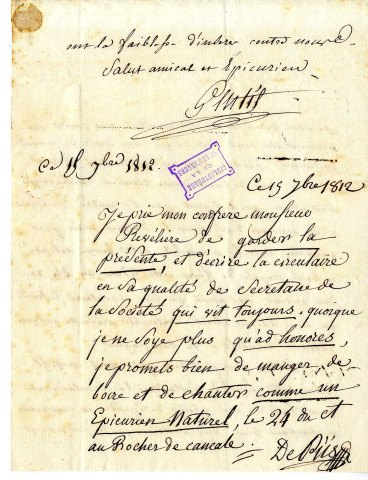 ont la faiblesse d'intere contre nous
Salut amical et Epicurien
Ce 15 7bre 1812
Ce 15 7bre 1812
Je prie mon confrere monsieur
de garder la
présente, et d'écrire la circulaire
en sa qualité de Secretaire de
la Societé qui vit toujours, quoique
je ne soye plus qu'ad honores,
je promets bien de manger, de
boire et de chanter comme un
Epicurien Naturel, le 24 du ct
au Rocher de cancale.
De Piis